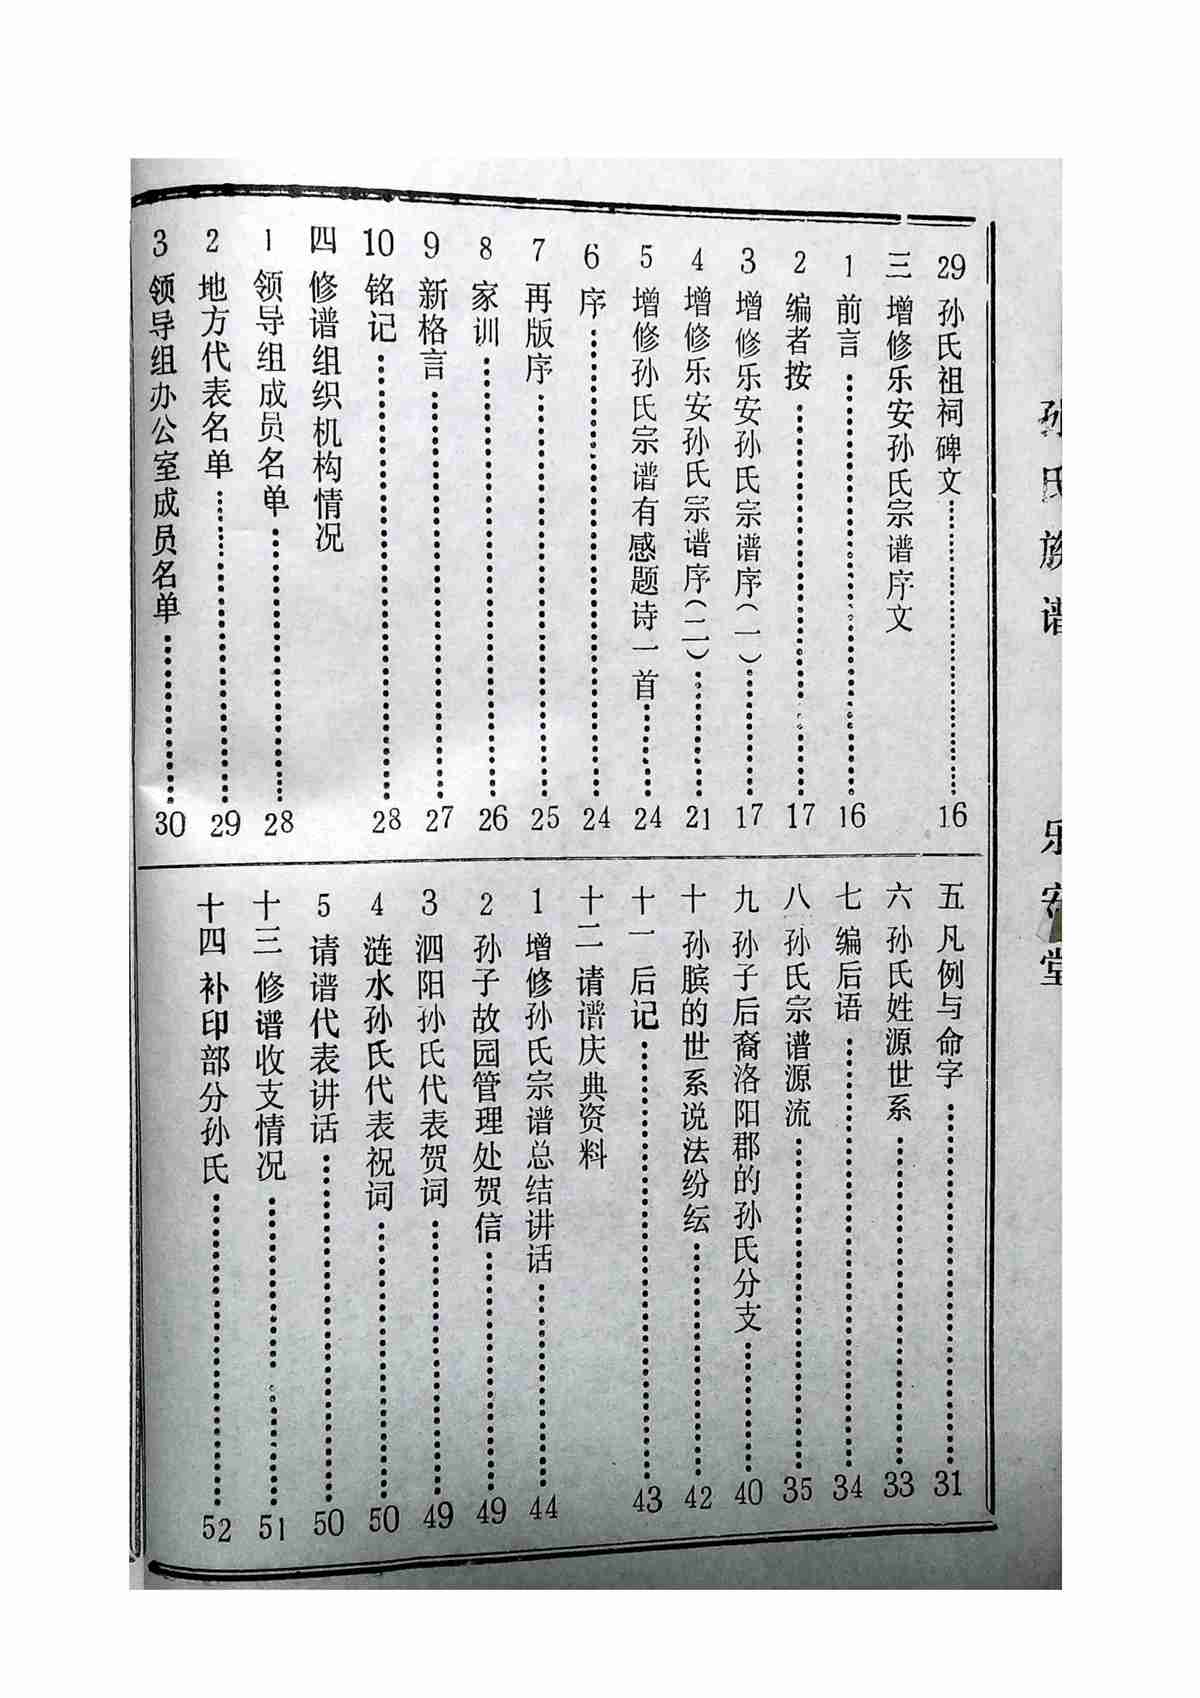 孙氏族谱 乐安堂
29 孙氏祖祠碑文 16
三 增修乐安孙氏宗谱序文
1 前言 16
2 编者按 17
3 增修乐安孙氏宗谱序(一) 17
4 增修乐安孙氏宗谱序(二) 21
5 增修孙氏宗谱有感题诗一首 24
6 序 24
7 再版序 25
8 家训 26
9 新格言 27
10 铭记 28
四 修谱组织机构情况
1 领导组成员名单 28
2 地方代表名单 29
3 领导组办公室成员名单 30
五 凡例与命字 31
六 孙氏姓源世系 33
七 编后语 34
八 孙氏宗谱源流 35
九 孙子后裔洛阳郡的孙氏分支 40
十 孙膑的世系说法纷纭 42
十一 后记 43
十二 请谱庆典资料
1 增修孙氏宗谱总结讲话 44
2 孙子故园管理处贺信 49
3 泗阳孙氏代表贺词 49
4 涟水孙氏代表祝词 50
5 请谱代表讲话 50
十三 修谱收支情况 51
十四 补印部分孙氏 52